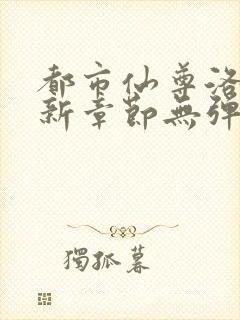 都市仙尊洛
新章節無彈
獨孤暮